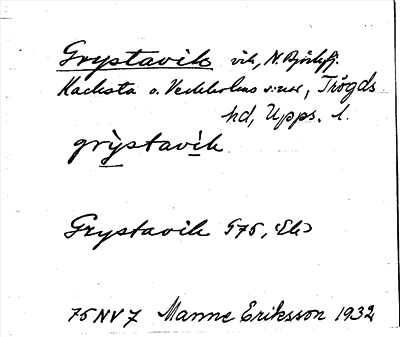 Grystavik vik, N. Björkfj.
Kacksta o. Veckholms s:nar, Trögds
hd, Upps. l.
grỳstavìk
Grystavik G75, Ek
75 NV 7 Manne Eriksson 1932